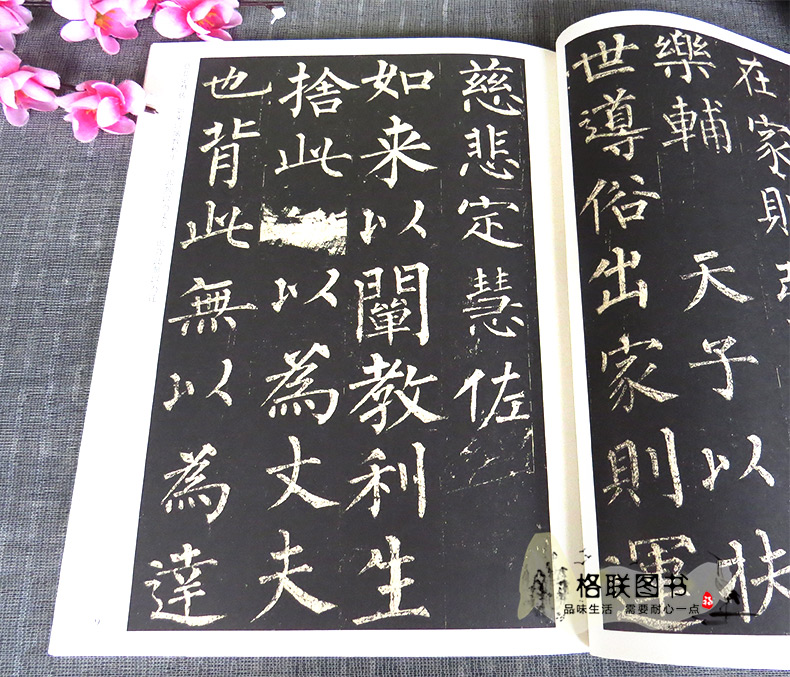 在家則
樂輔 天子以扶
世導俗出家則運
慈悲定慧佐
如来以闡教利生
捨此以為丈夫
也背此無以為達
格联图书
品味生活 需要耐心一点